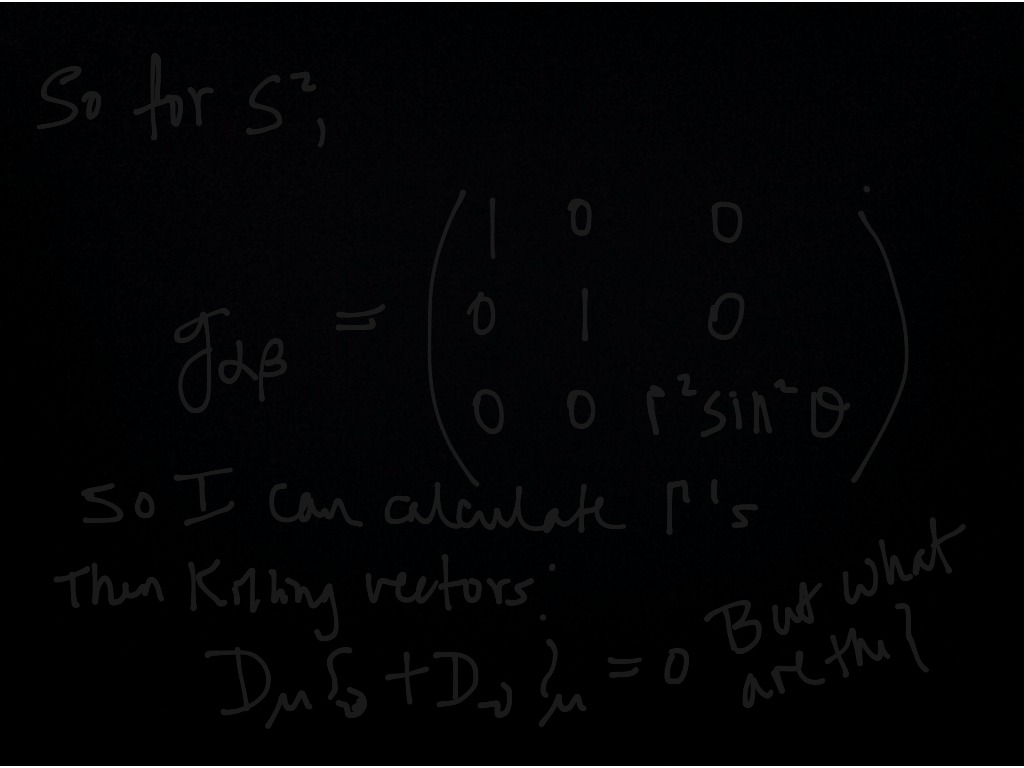 So for S²,
g_αβ = ( 1 0 0
0 1 0
0 0 r² sin² θ )
So I can calculate Γ's
Then Killing vectors:
D_μ ξ_ν + D_ν ξ_μ = 0 But what
are the ξ